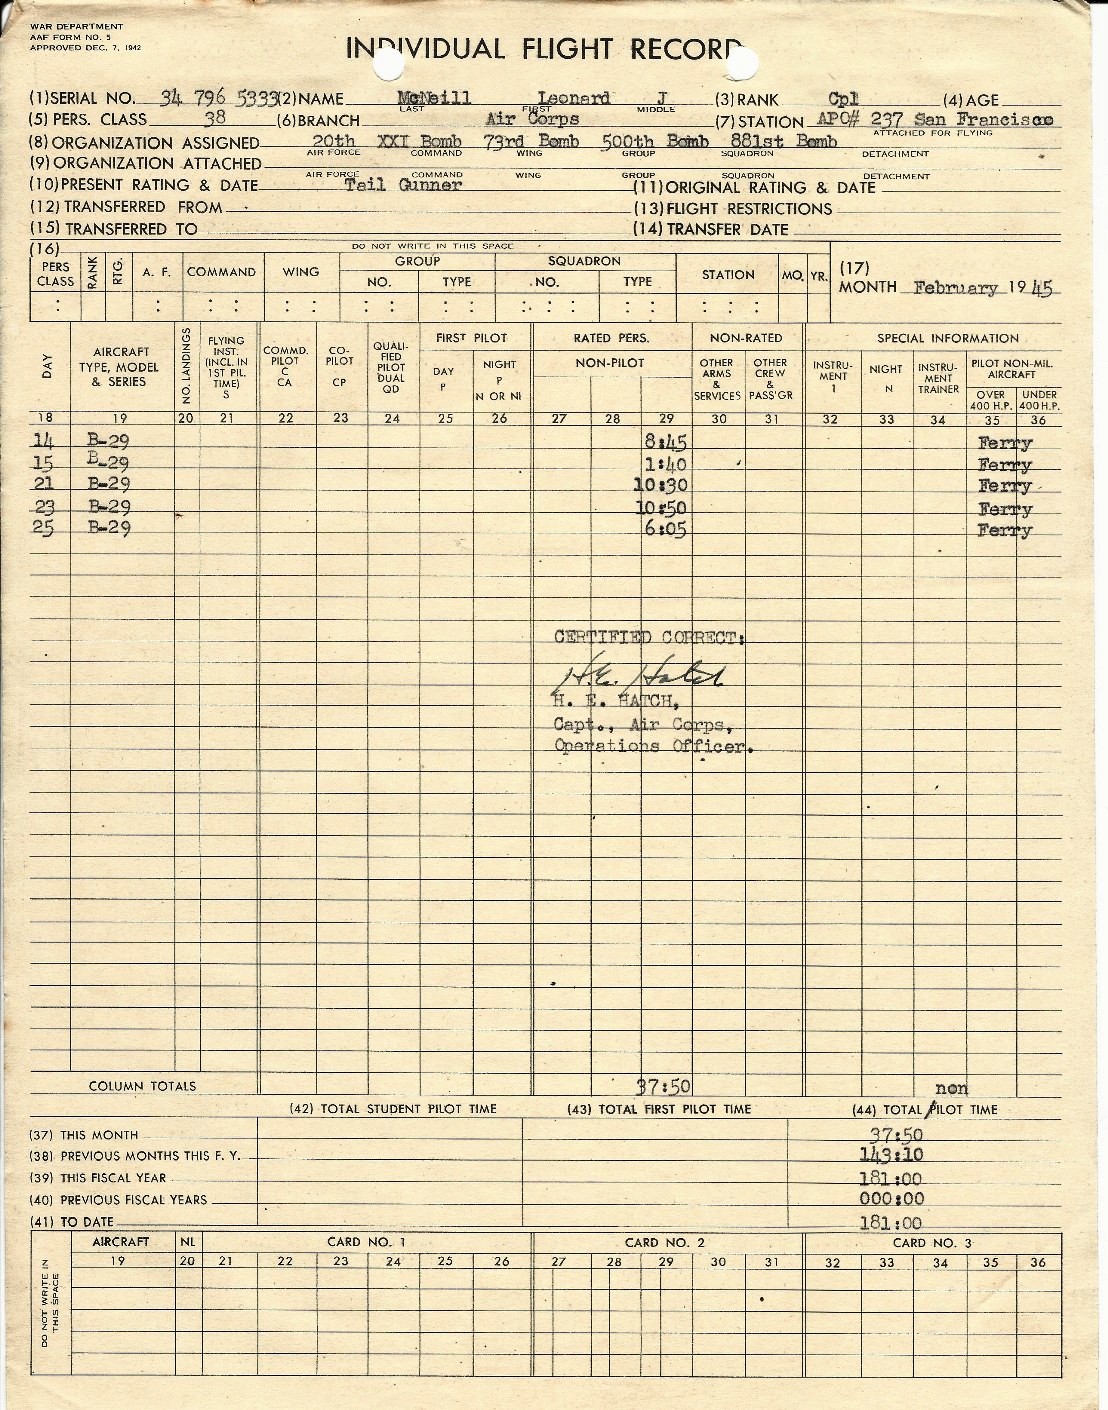 WAR DEPARTMENT
AAF FORM NO. 5
APPROVED DEC. 7, 1942
INDIVIDUAL FLIGHT RECORD
(1) SERIAL NO. 34 796 5333 (2) NAME McNeill Leonard J (3) RANK Cpl (4) AGE
LAST FIRST MIDDLE
(5) PERS. CLASS 38 (6) BRANCH Air Corps (7) STATION APO# 237 San Francisco
ATTACHED FOR FLYING
(8) ORGANIZATION ASSIGNED 20th XXI Bomb 73rd Bomb 500th Bomb 881st Bomb
AIR FORCE COMMAND WING GROUP SQUADRON DETACHMENT
(9) ORGANIZATION ATTACHED
AIR FORCE COMMAND WING GROUP SQUADRON DETACHMENT
(10) PRESENT RATING & DATE Tail Gunner (11) ORIGINAL RATING & DATE
(12) TRANSFERRED FROM (13) FLIGHT RESTRICTIONS
(15) TRANSFERRED TO (14) TRANSFER DATE
(16) DO NOT WRITE IN THIS SPACE
PERS CLASS RANK RTG. A. F. COMMAND WING GROUP NO. TYPE SQUADRON NO. TYPE STATION MO. YR.
(17) MONTH February 1945
DAY AIRCRAFT TYPE, MODEL & SERIES NO. LANDINGS FLYING INST. (INCL. IN 1ST PIL. TIME) S COMMD. PILOT C CA CO-PILOT CP QUALI-FIED PILOT DUAL QD FIRST PILOT DAY P NIGHT P N OR NI RATED PERS. NON-PILOT NON-RATED OTHER ARMS & SERVICES OTHER CREW & PASS'GR SPECIAL INFORMATION INSTRU-MENT I NIGHT N INSTRU-MENT TRAINER PILOT NON-MIL. AIRCRAFT OVER 400 H.P. UNDER 400 H.P.
18 19 20 21 22 23 24 25 26 27 28 29 30 31 32 33 34 35 36
14 B-29 8:45 Ferry
15 B-29 1:40 Ferry
21 B-29 10:30 Ferry
23 B-29 10:50 Ferry
25 B-29 6:05 Ferry
CERTIFIED CORRECT:
H.E. Hatch
H. E. HATCH,
Capt., Air Corps,
Operations Officer.
COLUMN TOTALS 37:50 non
(42) TOTAL STUDENT PILOT TIME (43) TOTAL FIRST PILOT TIME (44) TOTAL PILOT TIME
(37) THIS MONTH 37:50
(38) PREVIOUS MONTHS THIS F. Y. 143:10
(39) THIS FISCAL YEAR 181:00
(40) PREVIOUS FISCAL YEARS 000:00
(41) TO DATE 181:00
DO NOT WRITE IN THIS SPACE
AIRCRAFT NL CARD NO. 1 CARD NO. 2 CARD NO. 3
19 20 21 22 23 24 25 26 27 28 29 30 31 32 33 34 35 36